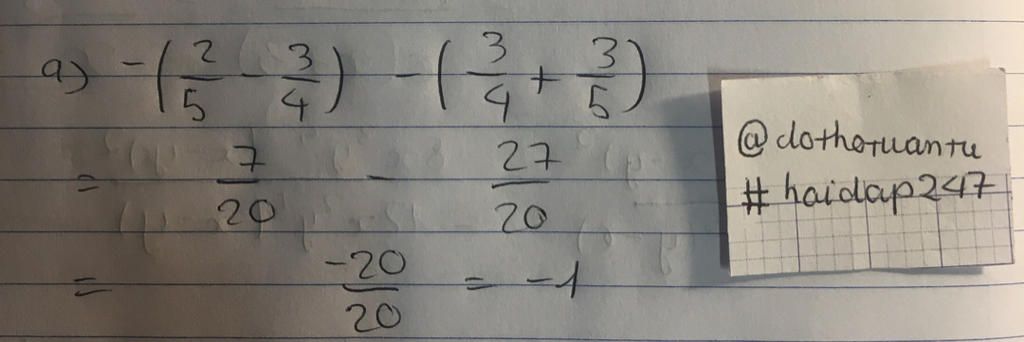 a) -(2/5 - 3/4) - (3/4 + 3/5)
= 7/20 - 27/20
= -20/20 = -1
@dothotuantu
#haidap247